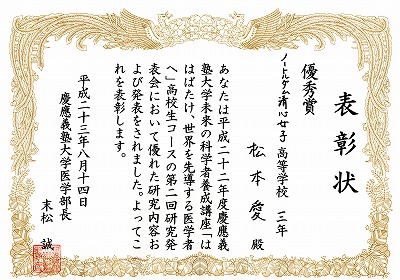 表彰状
優秀賞
ノートルダム清心女子高等学校 三年
松本愛 殿
あなたは平成二十二年度慶應義
塾大学未来の科学者養成講座「は
ばたけ、世界を先導する医学者
へ」高校生コースの第二回研究発
表会において優れた研究内容お
よび発表をされました。よってこ
れを表彰します。
平成二十三年八月十四日
慶應義塾大学医学部長
末松 誠